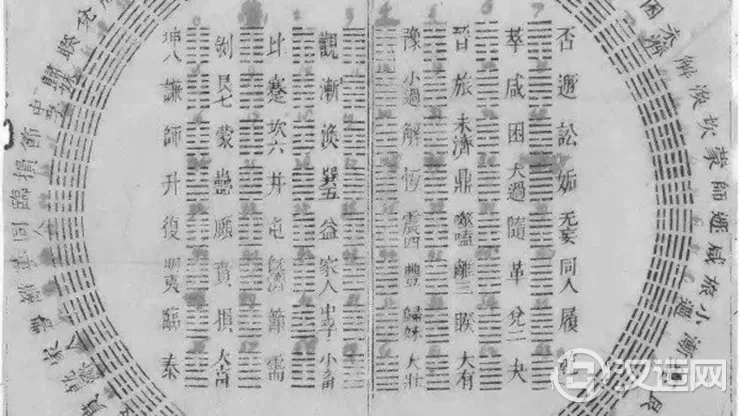 否 遯 訟 姤 无妄 同人 履
萃 咸 困 大過 隨 革 兌二 夬
晉 旅 未濟 鼎 噬嗑 離三 睽 大有
豫 小過 解 恆 震四 豐 歸妹 大壯
觀 漸 渙 巽五 益 家人 中孚 小畜
比 蹇 坎六 井 屯 既濟 節 需
剝 艮七 蒙 蠱 頤 賁 損 大畜
坤八 謙 師 升 復 明夷 臨 泰
困 未濟 解 渙 坎 蒙 師 遯 咸 旅 小過 漸
兌 睽 歸妹 中孚 節 損 臨 同人 革 離 豐 家人
汉程网